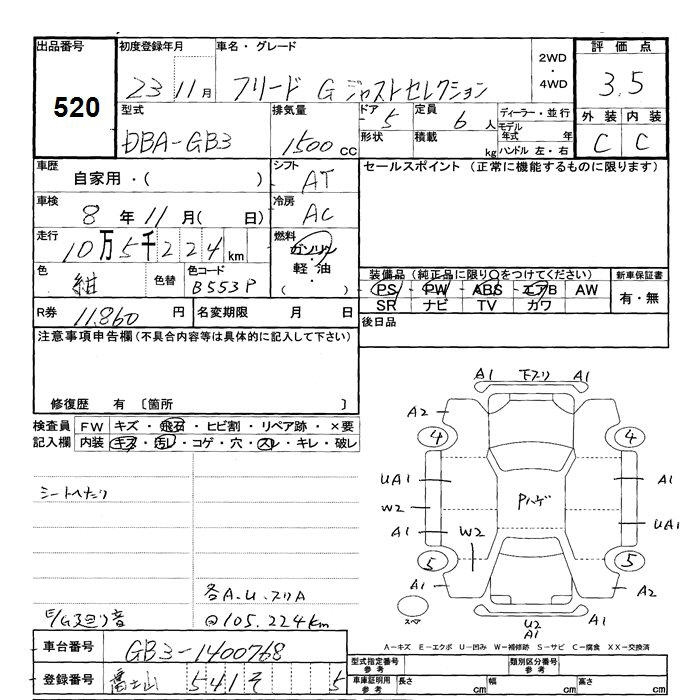 出品番号
520
初度登録年月
23 11月
車名・グレード
フリード G ジャストセレクション
2WD
・
4WD
評価点
3.5
外装 内装
C C
型式
DBA-GB3
排気量
1500 CC
ドア
5
形状
定員
6人
積載
kg
ディーラー・並行
モデル年式 年
ハンドル 左・右
車歴
自家用・( )
シフト
AT
セールスポイント (正常に機能するものに限ります)
車検
8年11月( 日)
冷房
AC
走行
10万5千224km
燃料
ガソリン
・
軽油
( )
色
紺
色替
色コード
B553P
装備品 (純正品に限り○をつけてください)
PS・PW・ABS・エアB AW
SR ナビ TV カワ
新車保証書
有・無
R券
11,860円
名変期限 月 日
後日品
注意事項申告欄(不具合内容等は具体的に記入して下さい)
修復歴 有 〔箇所 〕
検査員記入欄
FW キズ・飛石・ヒビ割・リペア跡・×要
内装 キズ・汚レ・コゲ・穴・スレ・キレ・破レ
シートヘたり
各A.U.スリA
E/G 廻り音
@105.224km
A1 下スリ A1
A2
4 4
UA1 A1
W2 Pハゲ
A1 W2 UA1
5 5
A1 A2
スペア
U2
A1
A-キズ E-エクボ U-凹み W-補修跡 S-サビ C-腐食 XX-交換済
車台番号
GB3-1400768
登録番号
富士山 541 そ 5
型式指定番号
参考
類別区分番号
参考
車庫証明用
参考
長さ cm
幅 cm
高さ cm